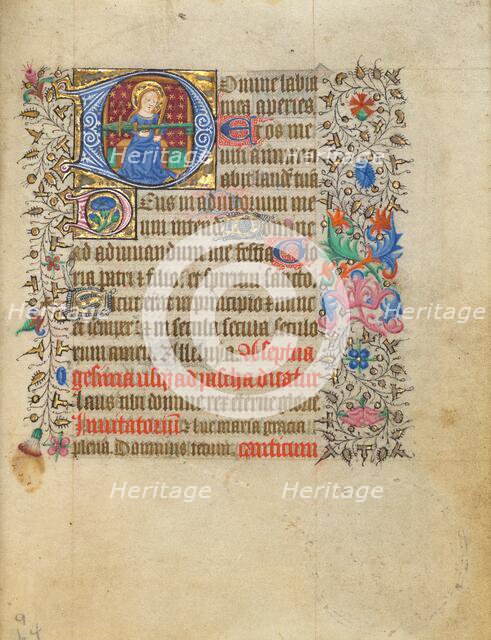 Domine labia
mea aperies
Et os me
um annu
Deus in adiutorium me
um intende
ad adiuuandum me festina Glo
ria patri & filio & spiritui sancto
Sicut erat in principio & nunc
et semper & in secula seculo
rum amen. Alleluya. A septua
gesima usq; ad pascha dicatur
Laus tibi domine rex eterne glorie.
Inuitatoriu Aue maria gracia
plena. Dominus tecum. canticum
Heritage Heritage
Heritage Heritage
Heritage Heritage
©
9
64